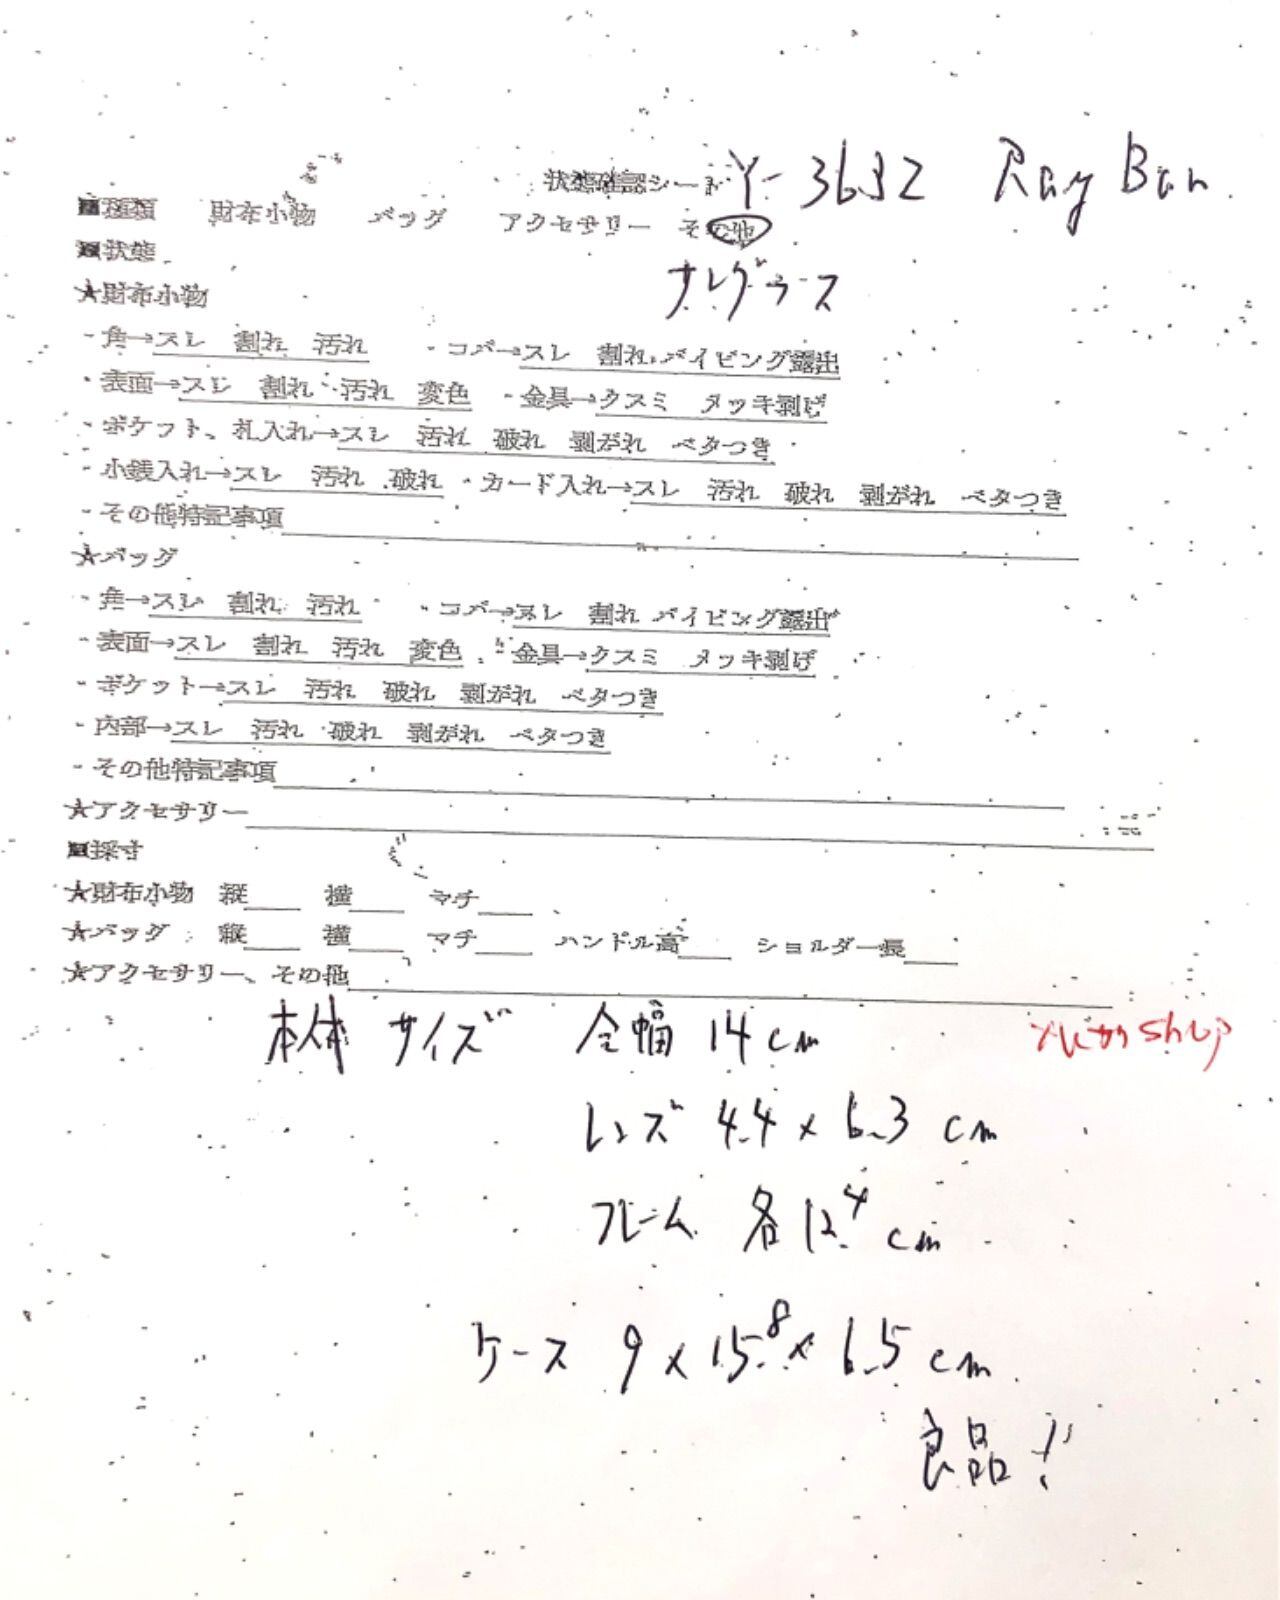 状態確認シート Y-3632 Ray Ban
■種類 財布小物 バッグ アクセサリー その他
■状態
サングラス
★財布小物
・角→スレ 割れ 汚れ ・コバ→スレ 割れ パイピング露出
・表面→スレ 割れ 汚れ 変色 ・金具→クスミ メッキ剥げ
・ポケット、札入れ→スレ 汚れ 破れ 剥がれ ベタつき
・小銭入れ→スレ 汚れ 破れ ・カード入れ→スレ 汚れ 破れ 剥がれ ベタつき
・その他特記事項
★バッグ
・角→スレ 割れ 汚れ ・コバ→スレ 割れ パイピング露出
・表面→スレ 割れ 汚れ 変色 ・金具→クスミ メッキ剥げ
・ポケット→スレ 汚れ 破れ 剥がれ ベタつき
・内部→スレ 汚れ 破れ 剥がれ ベタつき
・その他特記事項
★アクセサリー
■採寸
★財布小物 縦 横 マチ
★バッグ 縦 横 マチ ハンドル高 ショルダー長
★アクセサリー、その他
本体 サイズ 全幅 14cm
メルカリshop
レンズ 4.4 × 6.3 cm
フレーム 各12.4 cm
ケース 9 × 15.8 × 6.5 cm
良品!